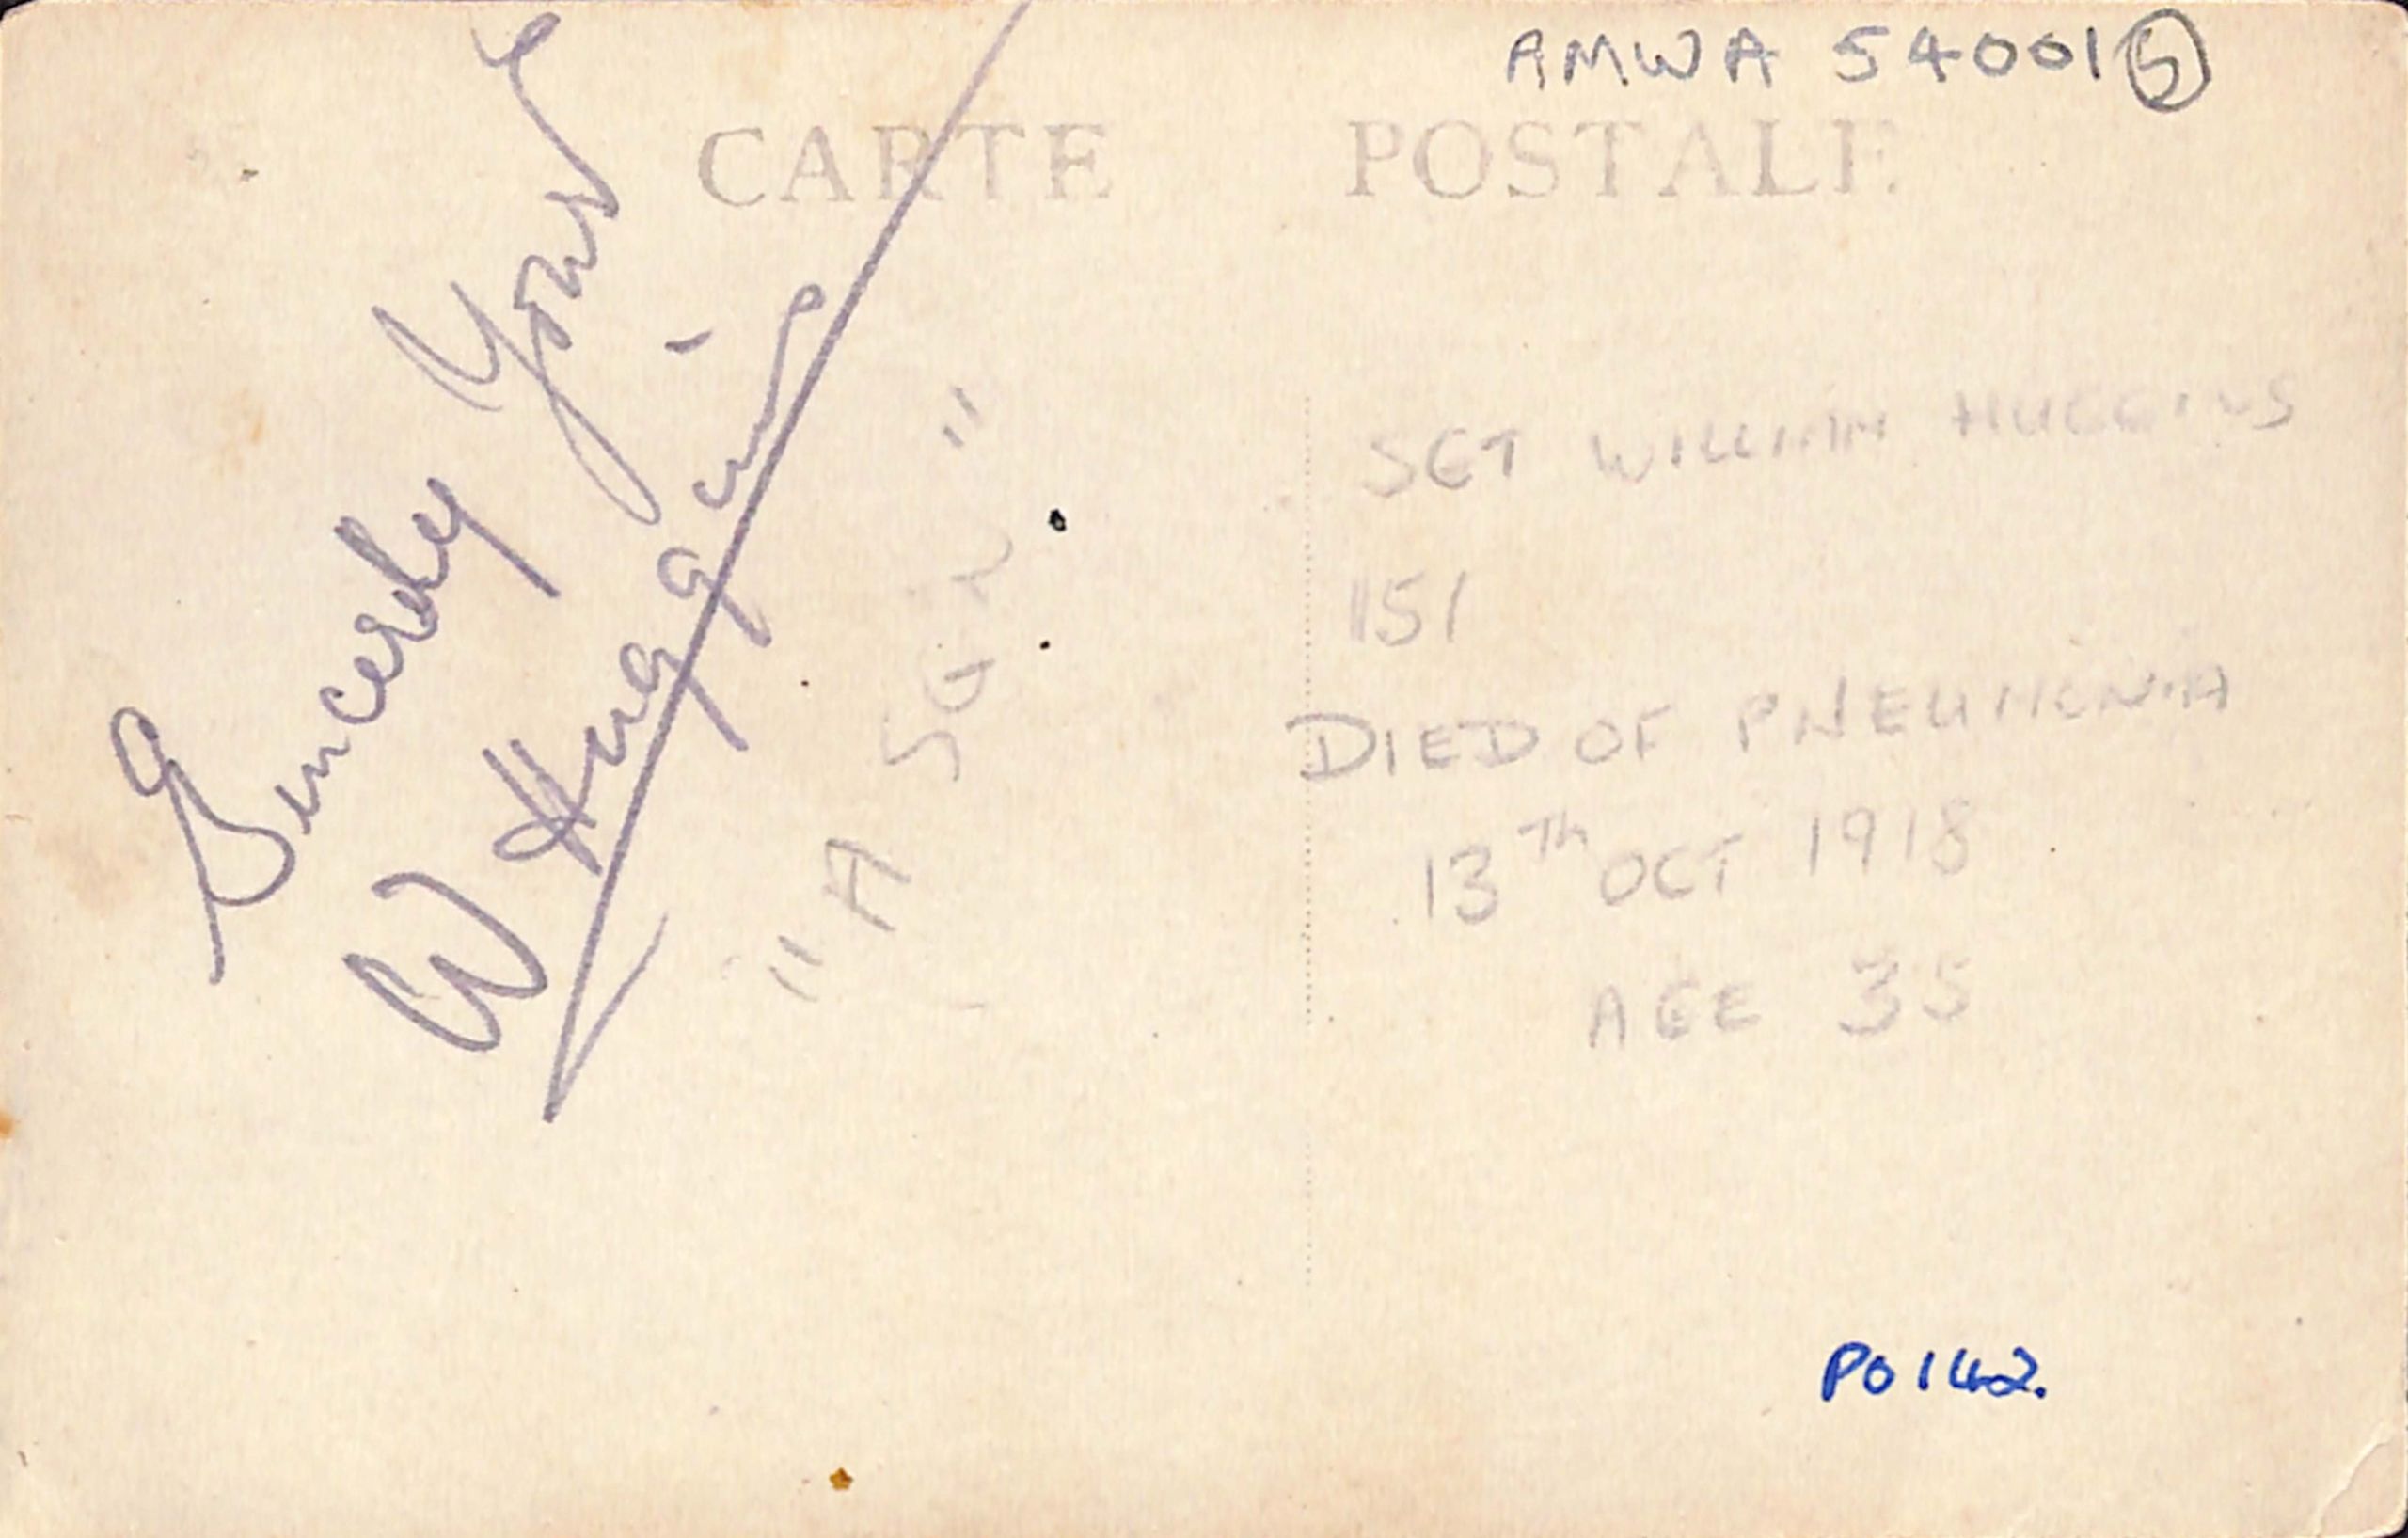 AMWA 54001 5
CARTE POSTALE
Sincerely Yours
W Huggins
"A SQN"
SGT WILLIAM HUGGINS
1151
DIED OF PNEUMONIA
13TH OCT 1918
AGE 35
PO142.